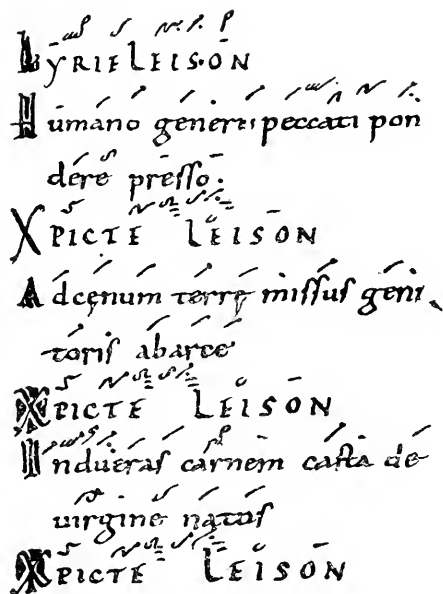 KYRIELEISON
Humano generi peccati pon
dere presso.
XPICTE LEISON
Adcęnum terrę missus geni
toris abarce
XPICTE LEISON
Indueras carnem casta de
uirgine natus
XPICTE LEISON